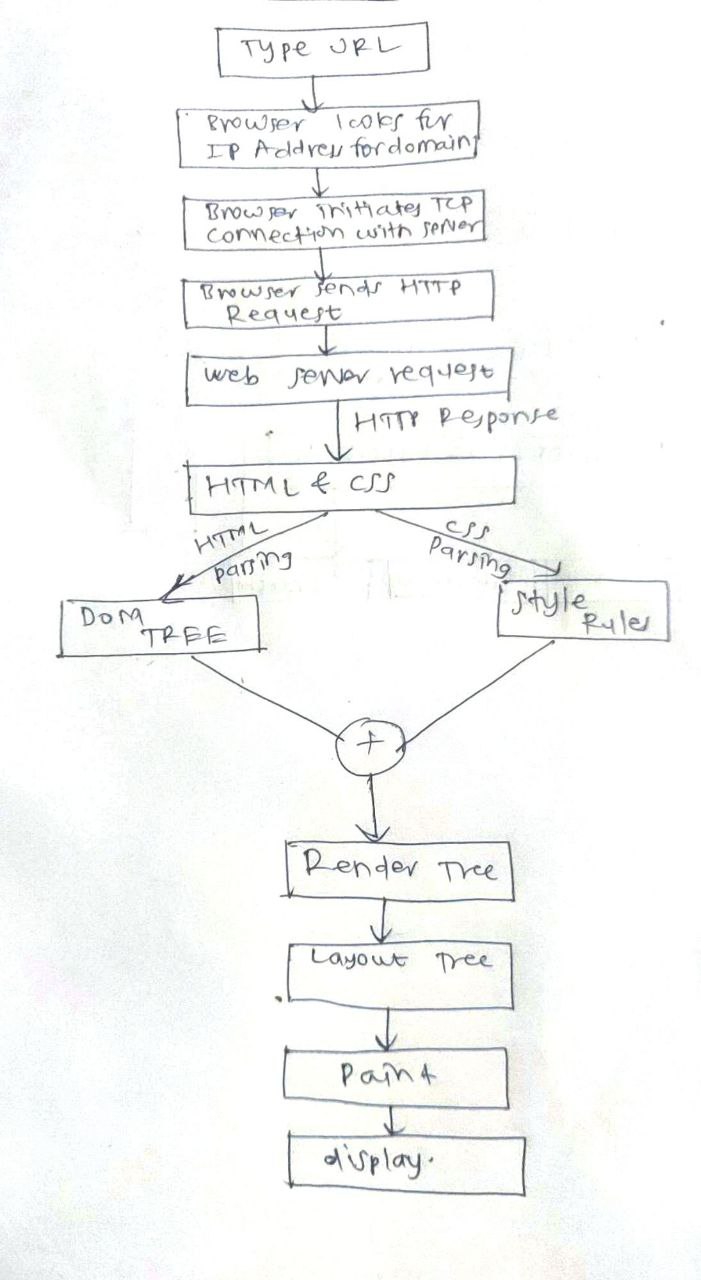 Type URL
Browser looks for
IP Address for domain
Browser initiates TCP
connection with server
Browser sends HTTP
Request
web server request
HTTP Response
HTML & CSS
HTML
parsing
CSS
Parsing
DOM
TREE
Style
Rules
+
Render Tree
Layout Tree
Paint
display.